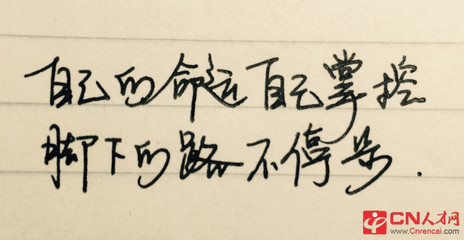 自己的命运自己掌控
脚下的路不停步.
CN人才网
www.Cnrencai.com